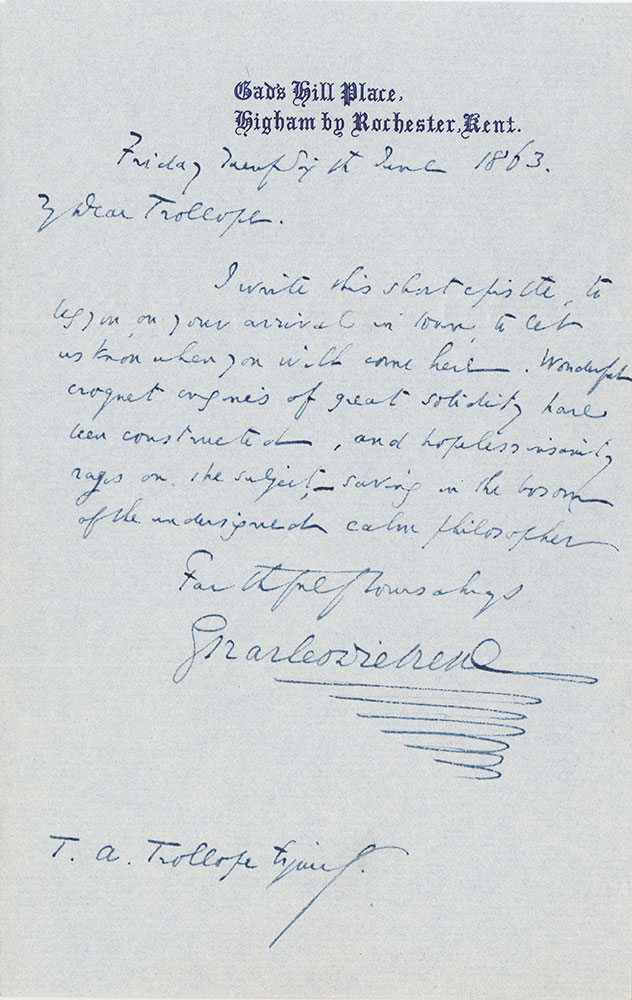 Gad's Hill Place,
Higham by Rochester, Kent.
Friday Twenty Sixth June 1863.
My Dear Trollope.
I write this short epistle, to
beg you, on your arrival in town, to let
us know when you will come here. Wonderful
croquet engines of great solidity have
been constructed, and hopeless insanity
rages on the subject, – saving in the bosom
of the undersigned calm philosopher
Faithfully Yours always
Charles Dickens
T. A. Trollope Esquire.